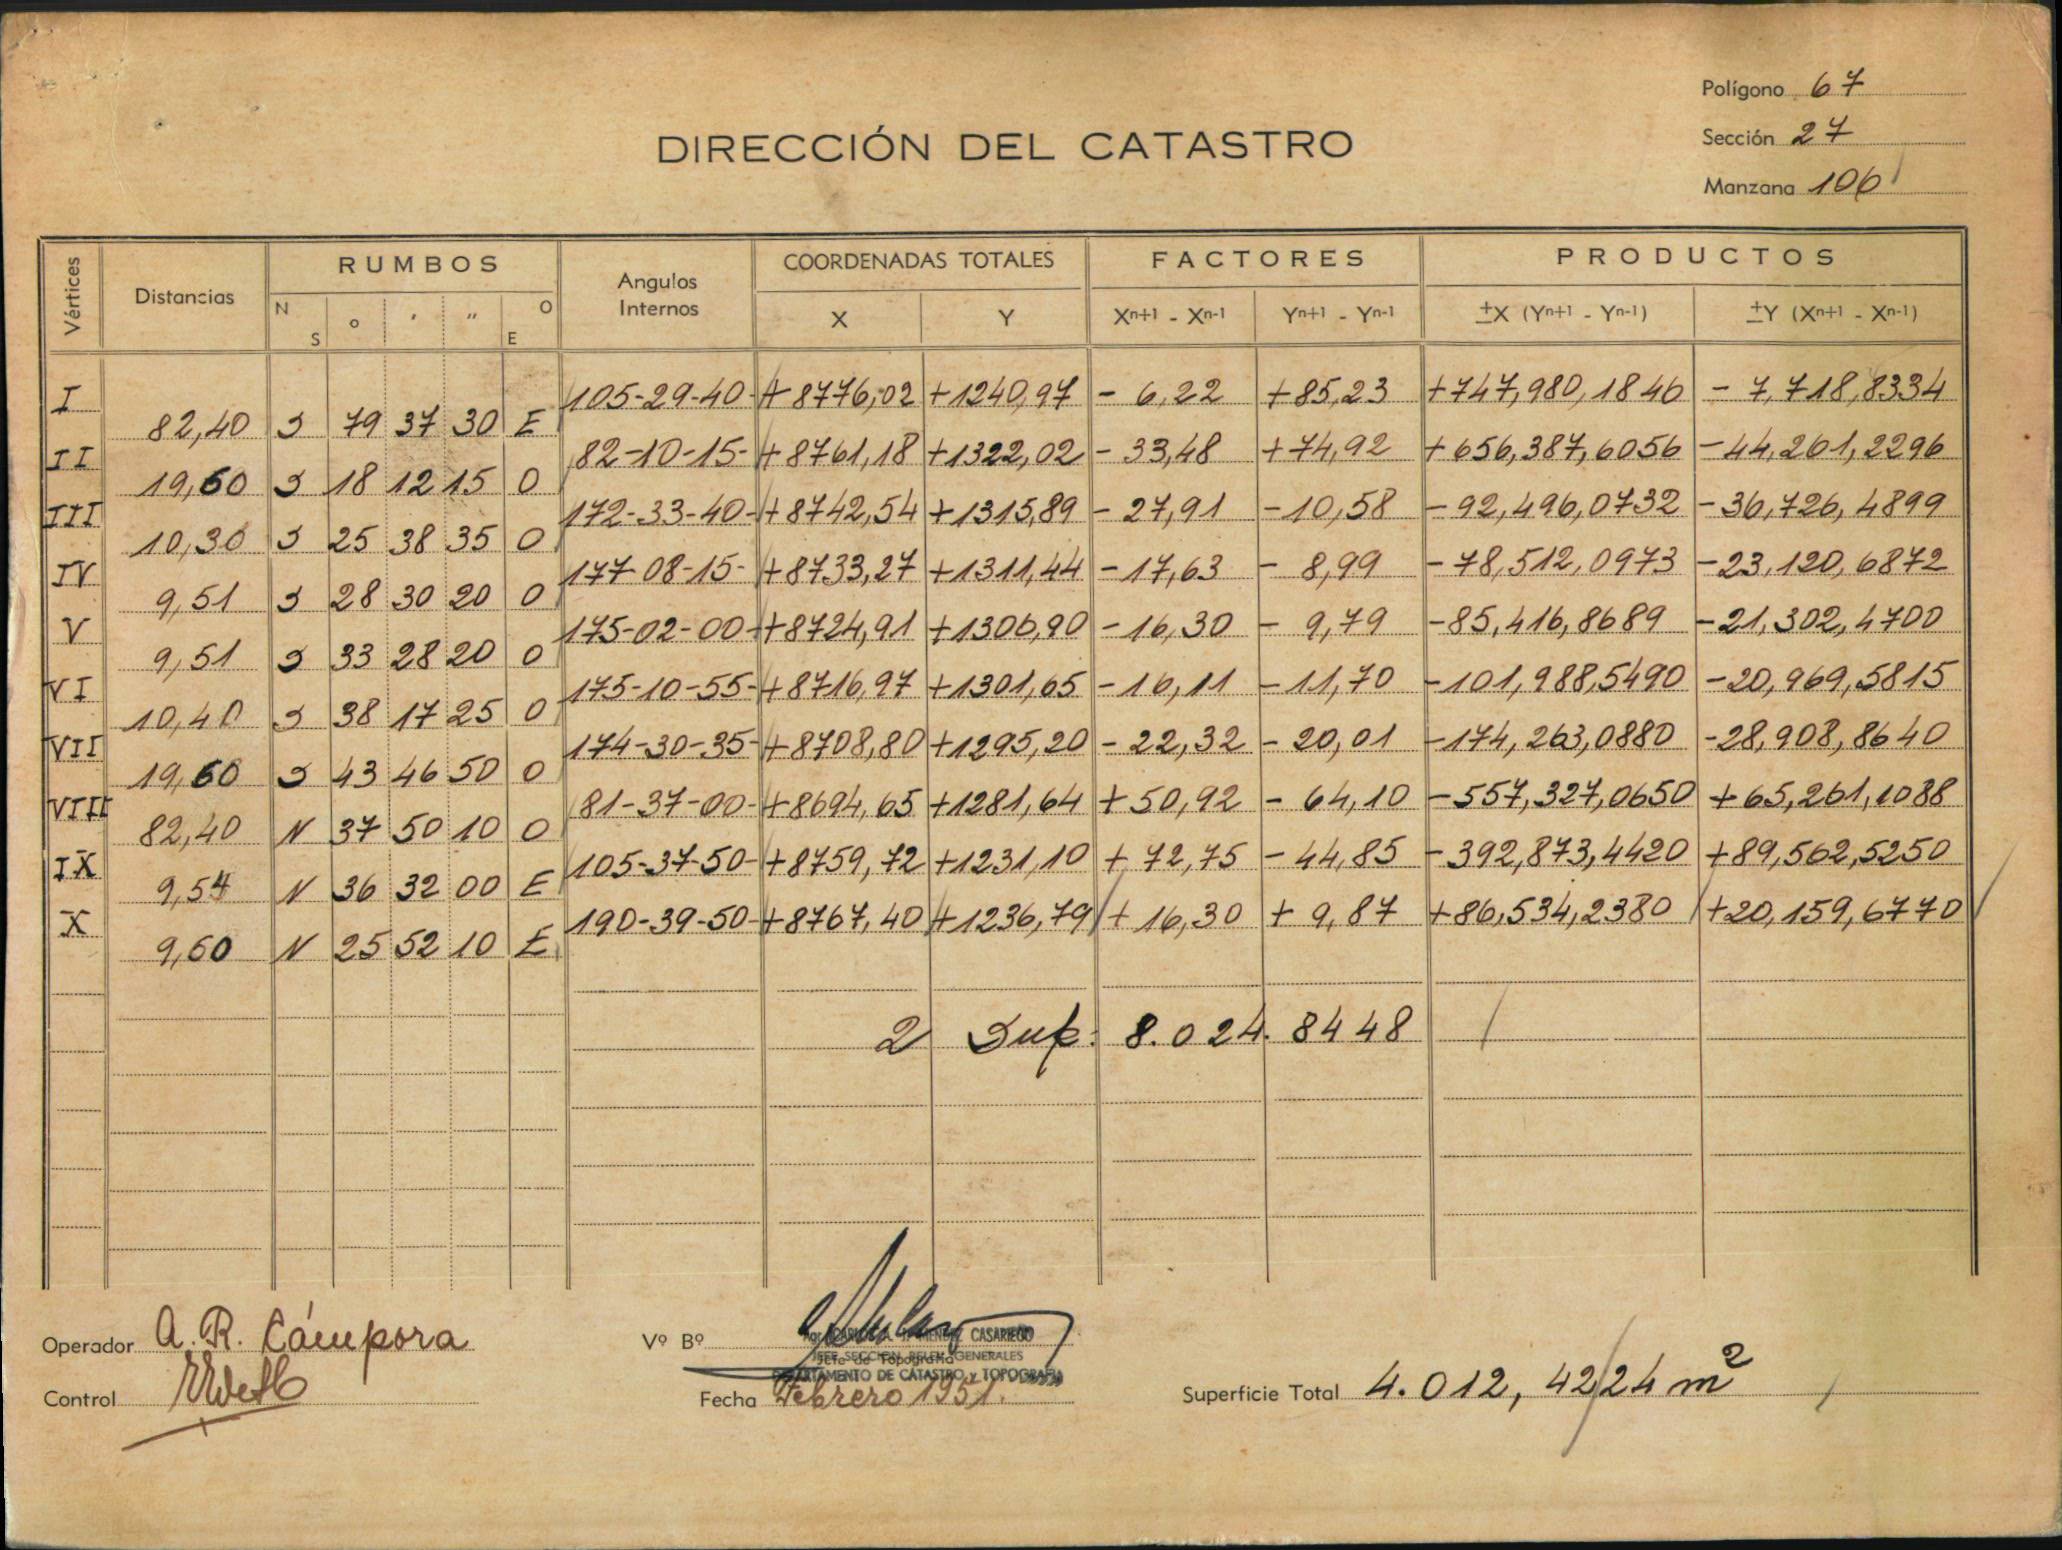 Polígono 67
Sección 27
Manzana 106
DIRECCIÓN DEL CATASTRO
Vértices Distancias RUMBOS Angulos Internos COORDENADAS TOTALES FACTORES PRODUCTOS
N S ° ' " O E X Y Xn+1 - Xn-1 Yn+1 - Yn-1 ±X (Yn+1 - Yn-1) ±Y (Xn+1 - Xn-1)
I 105-29-40- +8776,02 +1240,97 - 6,22 +85,23 +747,980,1846 - 7,718,8334
82,40 S 79 37 30 E
II 82-10-15- +8761,18 +1322,02 - 33,48 +74,92 +656,387,6056 -44,261,2296
19,60 S 18 12 15 O
III 172-33-40- +8742,54 +1315,89 - 27,91 -10,58 -92,496,0732 -36,726,4899
10,30 S 25 38 35 O
IV 177-08-15- +8733,27 +1311,44 -17,63 - 8,99 -78,512,0973 -23,120,6872
9,51 S 28 30 20 O
V 175-02-00- +8724,91 +1306,90 -16,30 - 9,79 -85,416,8689 -21,302,4700
9,51 S 33 28 20 O
VI 175-10-55- +8716,97 +1301,65 -16,11 -11,70 -101,988,5490 -20,969,5815
10,40 S 38 17 25 O
VII 174-30-35- +8708,80 +1295,20 - 22,32 - 20,01 -174,263,0880 -28,908,8640
19,60 S 43 46 50 O
VIII 81-37-00- +8694,65 +1281,64 + 50,92 - 64,10 -557,327,0650 +65,261,1088
82,40 N 37 50 10 O
IX 105-37-50- +8759,72 +1231,10 + 72,75 - 44,85 -392,873,4420 +89,562,5250
9,54 N 36 32 00 E
X 190-39-50- +8767,40 +1236,79 + 16,30 + 9,87 +86,534,2380 +20,159,6770
9,60 N 25 52 10 E
2 Sup: 8.024.8448
Operador A. R. Cámpora
Vº Bº
CARLOS A. MENDEZ CASARIEGO
JEFE SECCION GENERALES
Jefe de Topografía
DEPARTAMENTO DE CATASTRO Y TOPOGRAFIA
Control
Fecha Febrero 1951.
Superficie Total 4.012,4224 m2